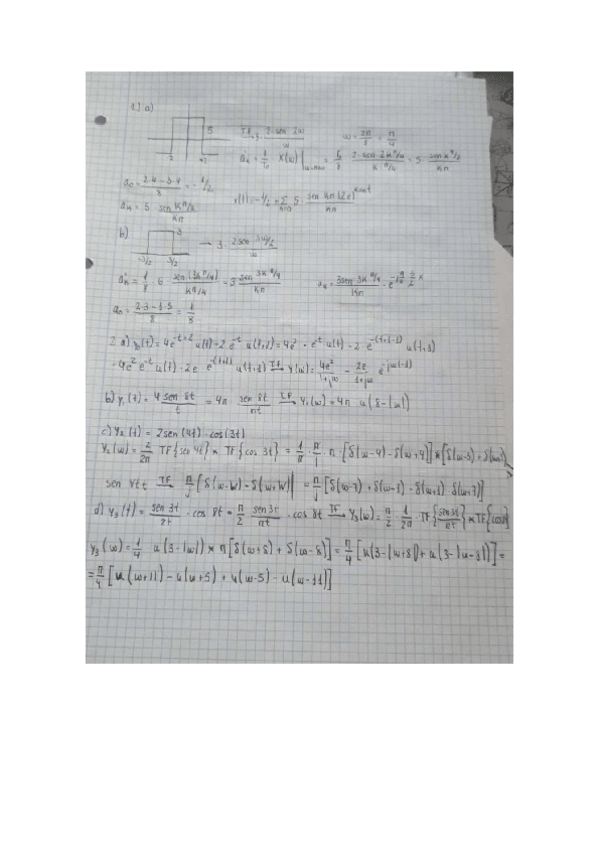 1.) a)
5
2
TF 3. 2·sen 2ω / ω
ω = 2π/8 = π/4
a_k = 1/T₀ X(ω)| = 5/8 · 2·sen 2kπ/4 / kπ/4 = 5· sen kπ/2 / kπ
a₀ = 2·4-3·4 / 8 = -1/2
a_k = 5 sen kπ/2 / kπ
b)
3
-3/2 3/2
→ 3· 2sen 3ω/2 / ω
a_k' = 1/8 · 6 sen(3kπ/4) / kπ/4 = 3 sen 3kπ/4 / kπ
a_k = 3sen 3kπ/4 / kπ
a₀ = / 8 = 1/8
2. a) y₀(t) = 4e^-t+2 u(t) - 2 e^-t u(t+1) = 4e² · e^-t u(t) - 2· e^-(t+1-1) u(t+1)
= 4e² e^-t u(t) - 2e e^-(t+1) u(t+1) TF Y(ω) = 4e² / 1+jω - 2e / 1+jω
b) y₁(t) = 4 sen 8t / t = 4π sen 8t / πt TF Y₁(ω) = 4π u(8-|ω|)
c) y₂(t) = 2sen(4t)·cos(3t)
Y₂(ω) = 2/2π TF{sen 4t} * TF{cos 3t} = 1/π · π/j · π · [δ(ω-4) - δ(ω+4)] * [δ(ω-3) + δ(ω+3)]
TF π/j [δ(ω-W) - δ(ω+W)] = π/j [δ(ω-7) + δ(ω-1) - δ(ω+1) - δ(ω+7)]
d) y₃(t) = sen 3t / 2t · cos 8t = π/2 sen 3t / πt · cos 8t TF Y₃(ω) = π/2 · 1/2π · TF{sen 3t / πt} * TF{cos 8t}
Y₃(ω) = 1/4 u(3-|ω|) * π[δ(ω+8) + δ(ω-8)] = π/4 [u(3-|ω+8|) + u(3-|ω-8|)] =
= π/4 [u(ω+11) - u(ω+5) + u(ω-5) - u(ω-11)]